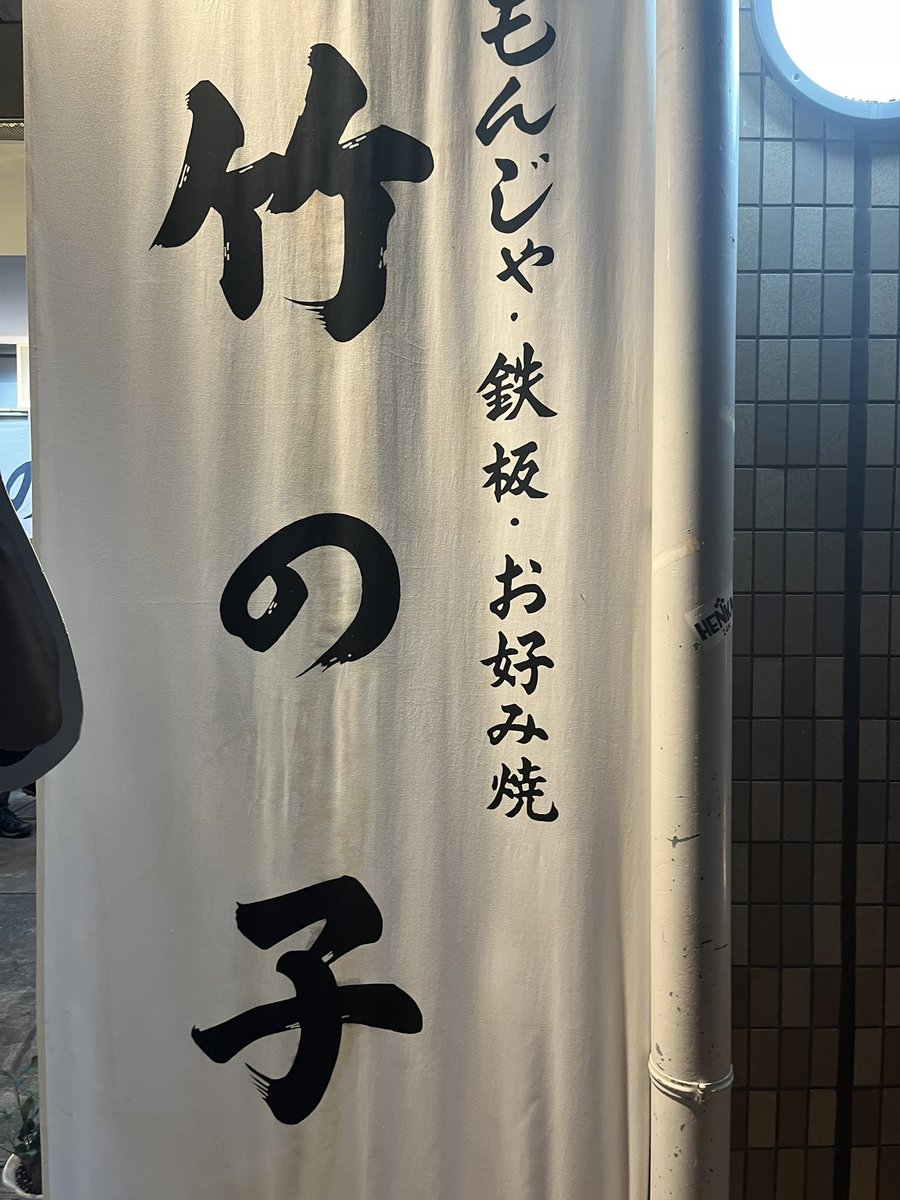 もんじゃ・鉄板・お好み焼
竹の子